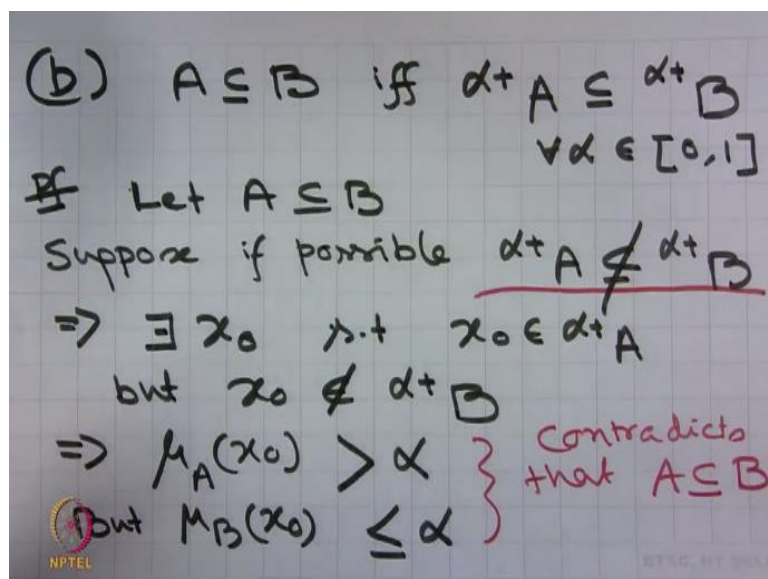 (b) A ⊆ B iff α+A ⊆ α+B
∀ α ∈ [0,1]
Pf Let A ⊆ B
Suppose if possible α+A ⊈ α+B
⇒ ∃ x₀ s.t x₀ ∈ α+A
but x₀ ∉ α+B
⇒ μ_A(x₀) > α
but μ_B(x₀) ≤ α
} contradicts
that A ⊆ B
NPTEL